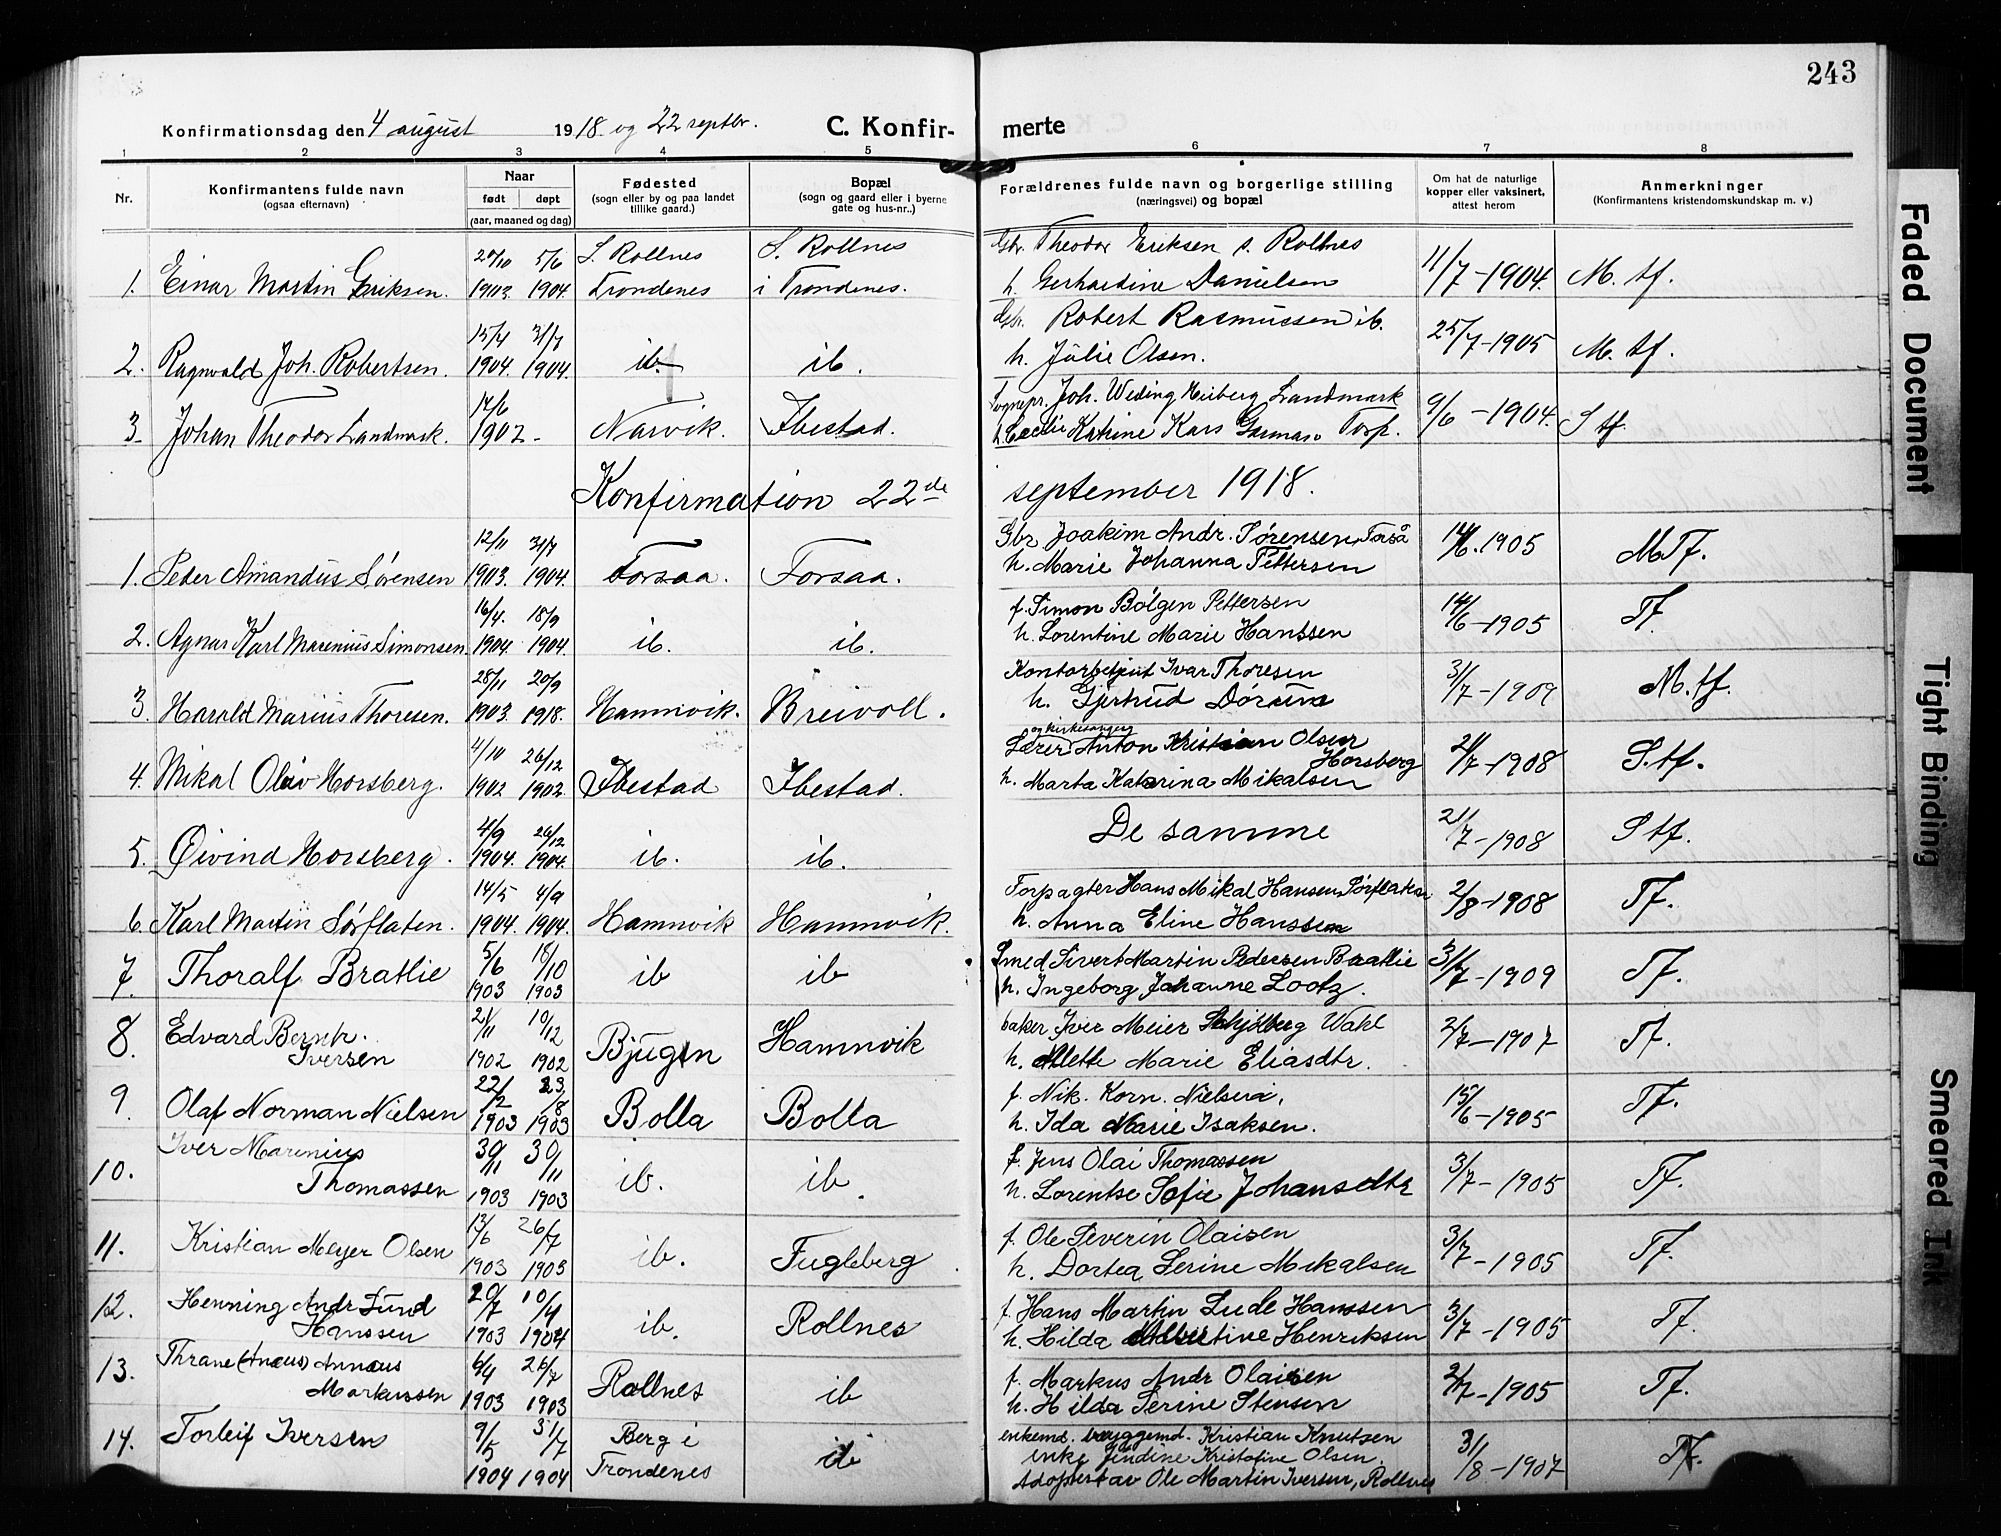 243
Konfirmationsdag den 4 august 1918 og 22 septbr. C. Konfir-merte
1 2 3 4 5 6 7 8
Nr. Konfirmantens fulde navn (ogsaa efternavn) Naar født døpt (aar, maaned og dag) Fødested (sogn eller by og paa landet tillike gaard.) Bopæl (sogn og gaard eller i byerne gate og hus-nr..) Forældrenes fulde navn og borgerlige stilling (næringsvei) og bopæl Om hat de naturlige kopper eller vaksinert, attest herom Anmerkninger (Konfirmantens kristendomskundskap m. v.)
20/10 5/6 S. Rollnes S. Rollnes Gbr. Theodor Eriksen s. Rollnes
1. Einar Martin Eriksen. 1903. 1904. Trondenes i Trondenes. h. Gerhardine Danielsen 11/7-1904. M. tf.
15/4 31/7 Gbr. Robert Rasmussen ib.
2. Ragnvald Joh. Robertsen. 1904. 1904. ib. ib. h. Julie Olsen. 25/7-1905 M. tf.
17/6 Sognepr. Joh. Weding Heiberg Landmark
3. Johan Theodor Landmark. 1902- Narvik. Ibestad. h. Cecilie Katrine Kars Garmas Torp. 9/6-1904. S tf.
Konfirmation 22de september 1918.
12/11 31/7 Gbr Joakim Andr. Sørensen, Forså
1. Peder Amandus Sørensen 1903. 1904. Forsaa. Forsaa. h. Marie Johanna Pettersen 14/6.1905 M Tf.
16/4. 18/9 f. Simon Bølgen Pettersen
2. Agnar Karl Marenius Simonsen. 1904. 1904. ib. ib. h. Lorentine Marie Hanssen 14/6-1905 Tf.
28/11 20/9 Kontorbetjent Ivar Thoresen
3. Harald Marius Thoresen. 1903. 1918. Hamnvik. Breivoll. h. Gjertrud Dørum 31/7-1909 M. tf.
4/10 26/12 og kirkesanger
Lærer Anton Kristian Olsen Horsberg
4. Mikal Olav Horsberg. 1902 1902. Ibestad Ibestad. h. Marta Katarina Mikalsen 21/7-1908 S. tf.
4/9 26/12
5. Øivind Horsberg. 1904. 1904. ib. ib. De samme 21/7-1908 S tf.
14/5 4/9 Forpagter Hans Mikal Hansen Sørflaten
6. Karl Martin Sørflaten. 1904. 1904. Hamnvik Hamnvik. h. Anna Eline Hanssen 2/8-1908 Tf.
5/6 18/10 Smed Sivert Martin Pedersen Bratlie
7. Thoralf Bratlie 1903 1903 ib ib h. Ingeborg Johanne Lootz. 31/7-1909 Tf.
21/11 10/12 baker Iver Meier Schjølberg Wahl
8. Edvard Bernh. Iversen 1902 1902 Bjugn Hamnvik h. Alette Marie Eliasdtr. 2/7-1907 Tf.
22/2 23/8 f. Nik. Korn. Nielsen,
9. Olaf Norman Nielsen 1903 1903 Bolla Bolla h. Ida Marie Isaksen. 15/6-1905 Tf.
Iver Marenius 30/11 30/11 f. Jens Olai Thomassen
10. Thomassen 1903 1903 ib. ib. h. Lorentse Sofie Johansdtr 3/7-1905 Tf.
13/6 26/7 f. Ole Severin Olaisen
11. Kristian Meyer Olsen 1903 1903 ib. Fugleberg. h. Dortea Serine Mikalsen 3/7-1905 Tf.
20/7 10/4 f. Hans Martin Lude Hanssen
12. Henning Andr Lund Hanssen 1903 1904 ib. Rollnes h. Hilda Albertine Henriksen 3/7-1905 Tf.
Thrane (Anæus) Annæus 6/4 26/7 f. Markus Andr Olaisen
13. Markussen 1903 1903 Rollnes ib h. Hilda Serine Stensen 2/7-1905 Tf.
14. Torleif Iversen 9/5 31/7 Berg i ib enkemd. byggemd. Kristian Knutsen
1904 1904 Trondenes enke Jendine Kristofine Olsen. 31/8-1907 Tf.
Adoptert av Ole Martin Iversen, Rollnes
Faded Document
Tight Binding
Smeared Ink